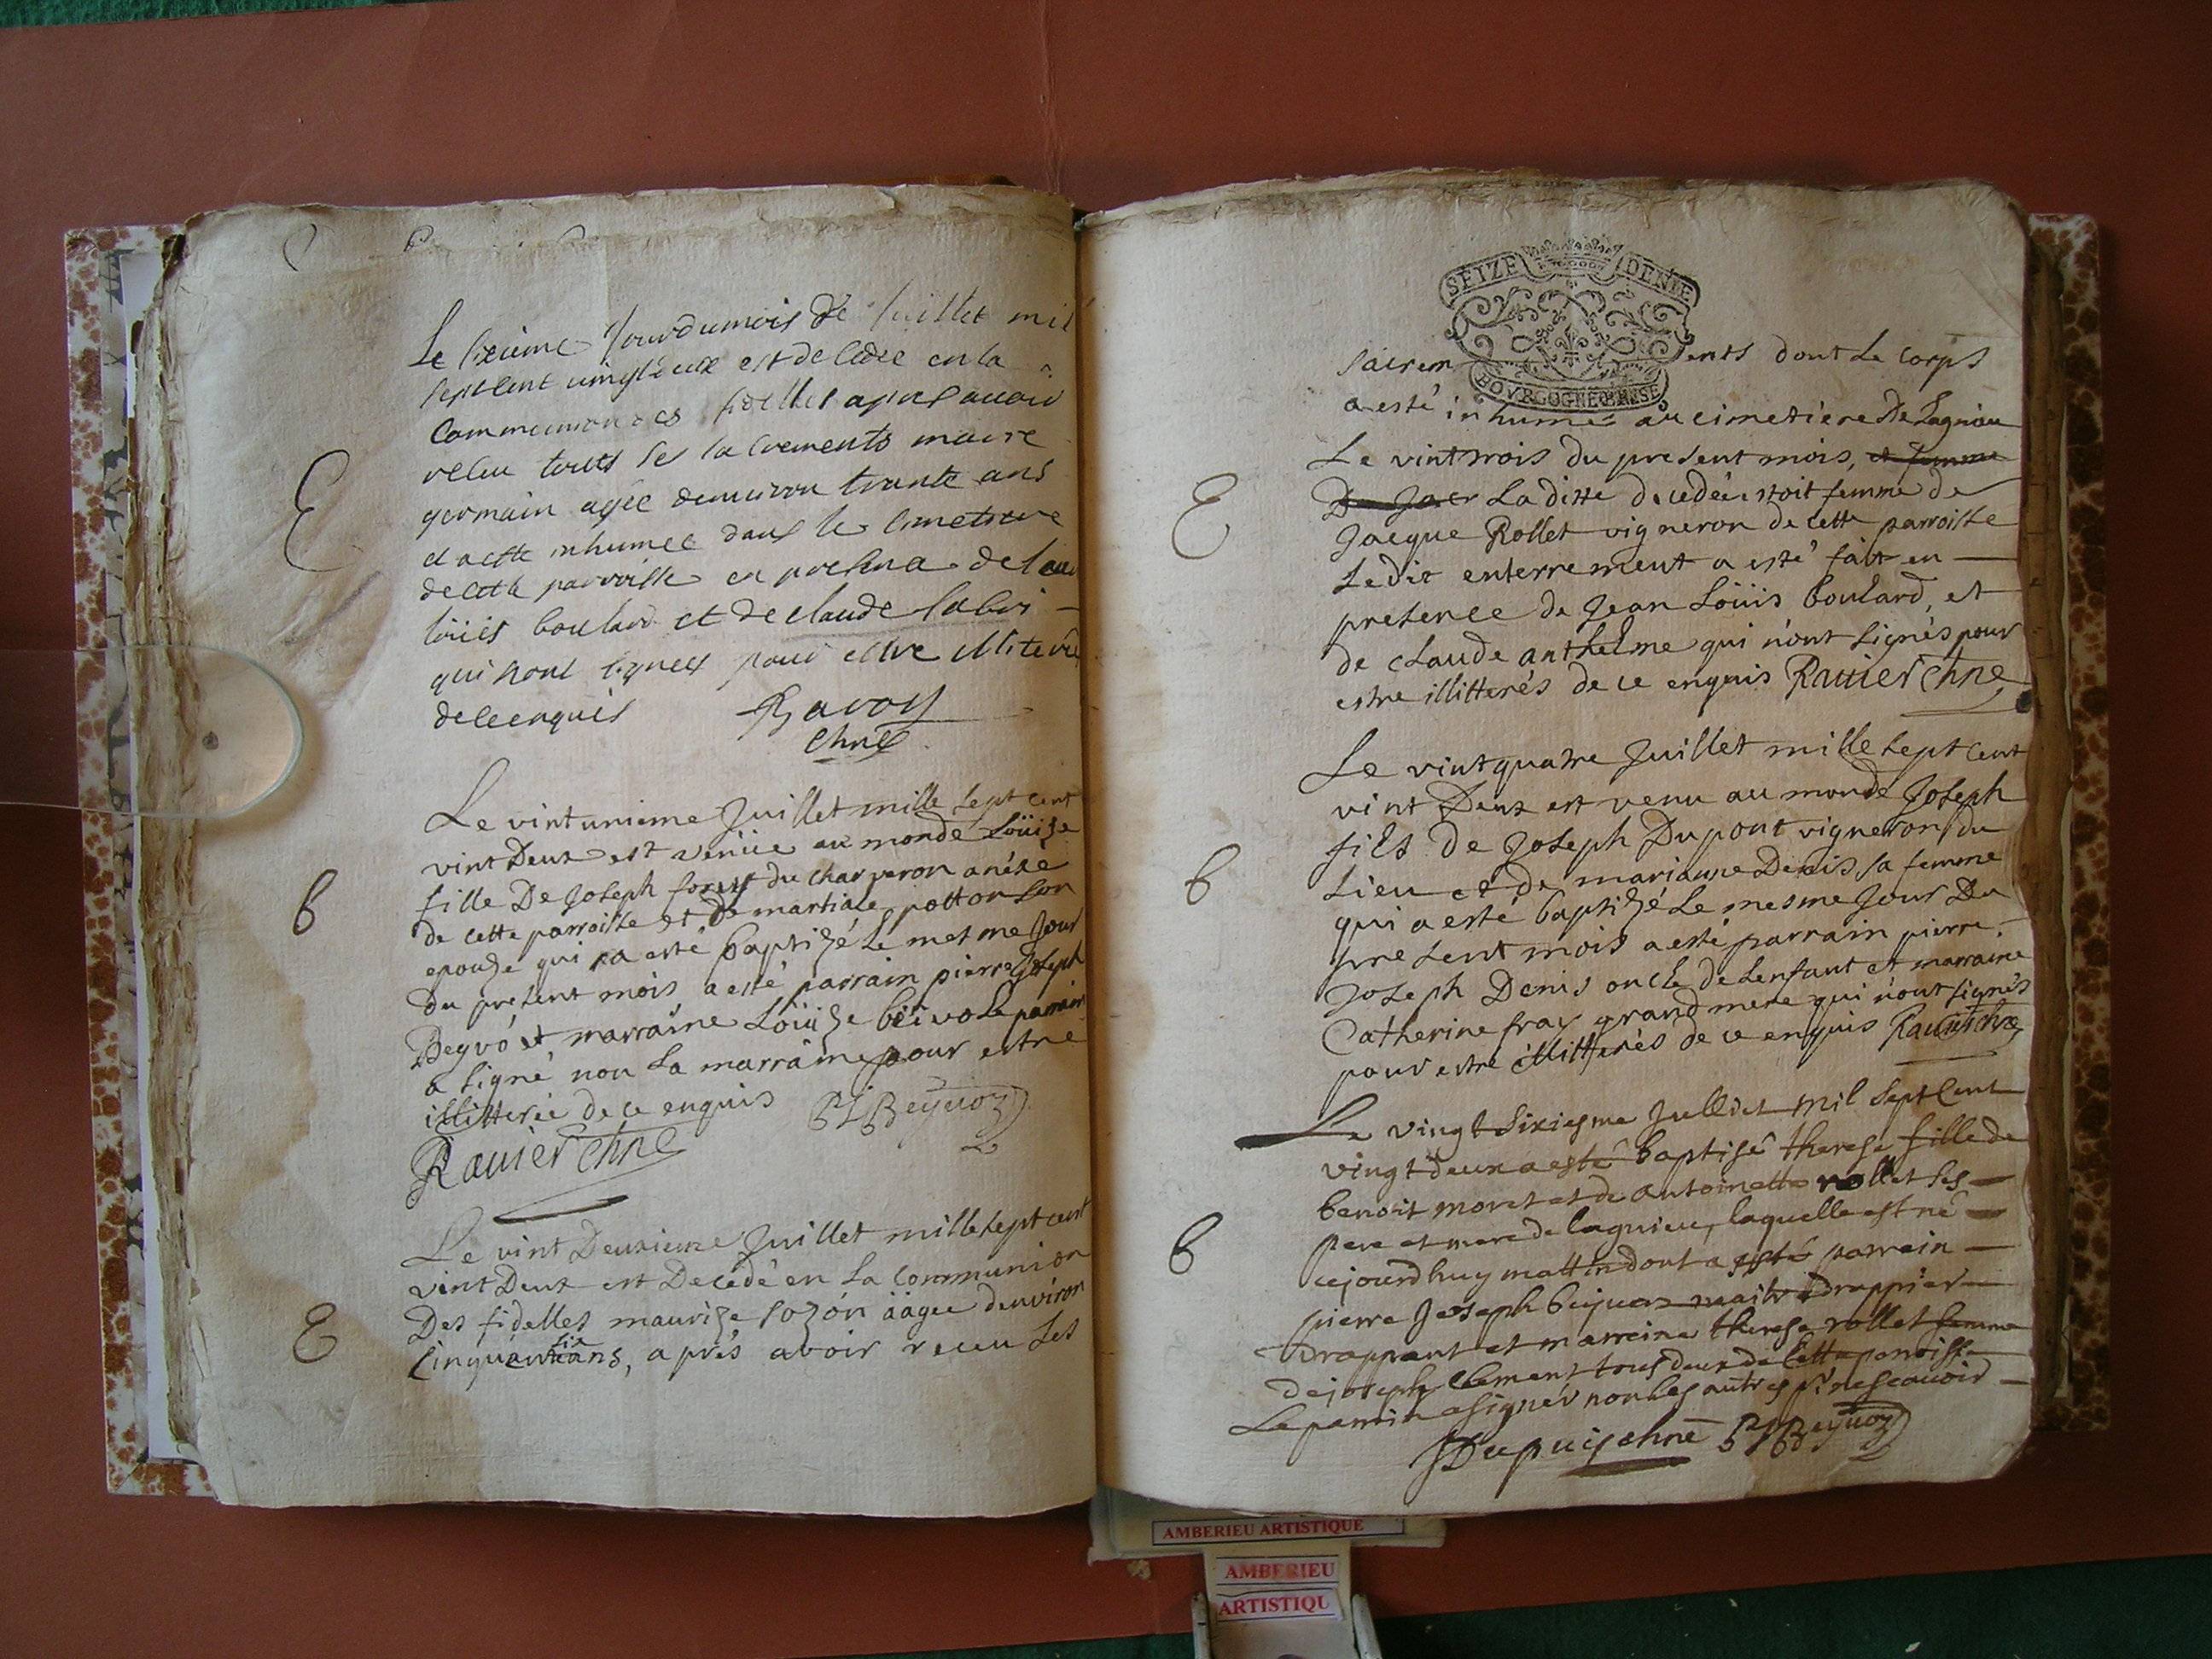 Le sixieme Jour du mois de Juillet mil
sept cent vingt deux est decedee en la
Communion des fidelles apres avoir
receu touts les sacrements
germain agée denviron trante ans
et a ette inhumee dans le cimettiere
de cette parroisse en presence de Jean
loüis boulard et de claude
E
qui nont signees pour estre illiteres
de ce enquis
Ravoy
chne
Le vintunieme Juillet mille sept cent
vint Deux est venüe au monde Loüize
fille De Joseph du charveron anéxe
de cette parroisse et De martiale potton son
B
epouze qui a esté baptizé Le mesme Jour
du present mois a esté parrain pierre Joseph
Beyvó et marraine Loüize béivo Le parrain
a signé non La marraine pour estre
illitterée de ce enquis PJBeyvoz
Ravier chne
Le vint Deuxieme Juillet mille sept cent
vint Deux est Decedé en La Communion
Des fidelles maurize sozon äàgee denviron
E
Cinquante six ans, aprés avoir receu Les
SEIZE DENIE
BOVRGOGNE BRESSE
sacrem ents dont Le Corps
a esté inhumé au cimetiere De Lagnieu
Le vintrois du present mois, et femme
De Jacr La ditte decedée estoit femme de
E
Jacque Rollet vigneron de cette parroisse
Ledit enterrement a esté fait en
presence de Jean Loüis boulard, et
de claude anthelme qui n'ont signés pour
estre illitterés de ce enquis Ravier chne
Le vintquatre Juillet mille sept cent
vint Deux est venu au monde Joseph
fils de Joseph Dupont vigneron du
Lieu et de marianne Denis sa femme
B
qui a esté baptizé Le mesme Jour Du
present mois a esté parrain pierre
Joseph Denis oncle de Lenfant et marraine
Catherine fray grand mere qui n'ont signés
pour estre illitterés de ce enquis Ravier chne
Le vingt sixiesme Julliet mil sept cent
vingt deux a esté baptisé therese fille de
benoit moret et de antoinette rollet ses
pere et mere de lagnieu, laquelle est né
B
cejourdhuy mattin dont a esté parrein
pierre Joseph beyvoz maitre drappier
drappant et marreine therese rollet femme
de joseph Clement tous deux de cette parroisse
Le parrin a signér non les autres pr ne scavoir
Dupuis chne PJBeyvoz
AMBERIEU ARTISTIQUE
AMBERIEU
ARTISTIQU